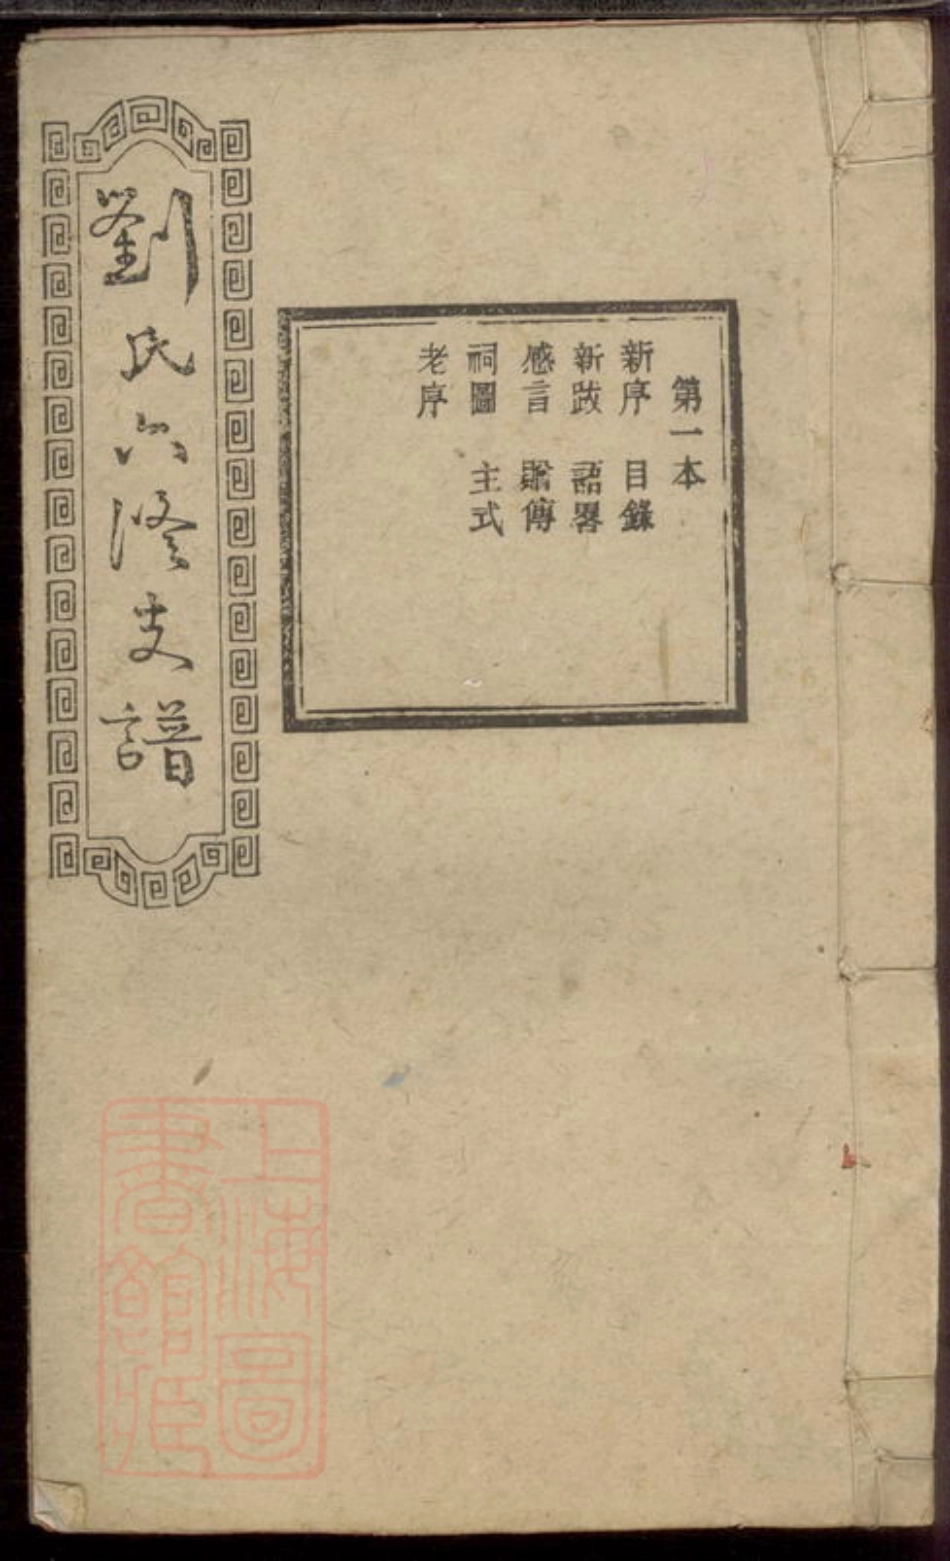 劉氏六修支譜
第一本
新序 目錄
新跋 誥畧
感言 贈傳
祠圖 主式
老序
上海圖
書館藏